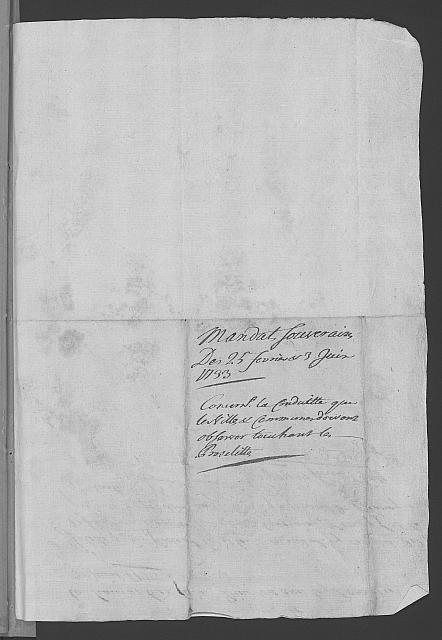 Mandat Souverain
Des 25 fevrier & 3 Juin
1733
Concernt. la Conduitte que
les Villes & Communes doivent
observer touchant les
Proselites